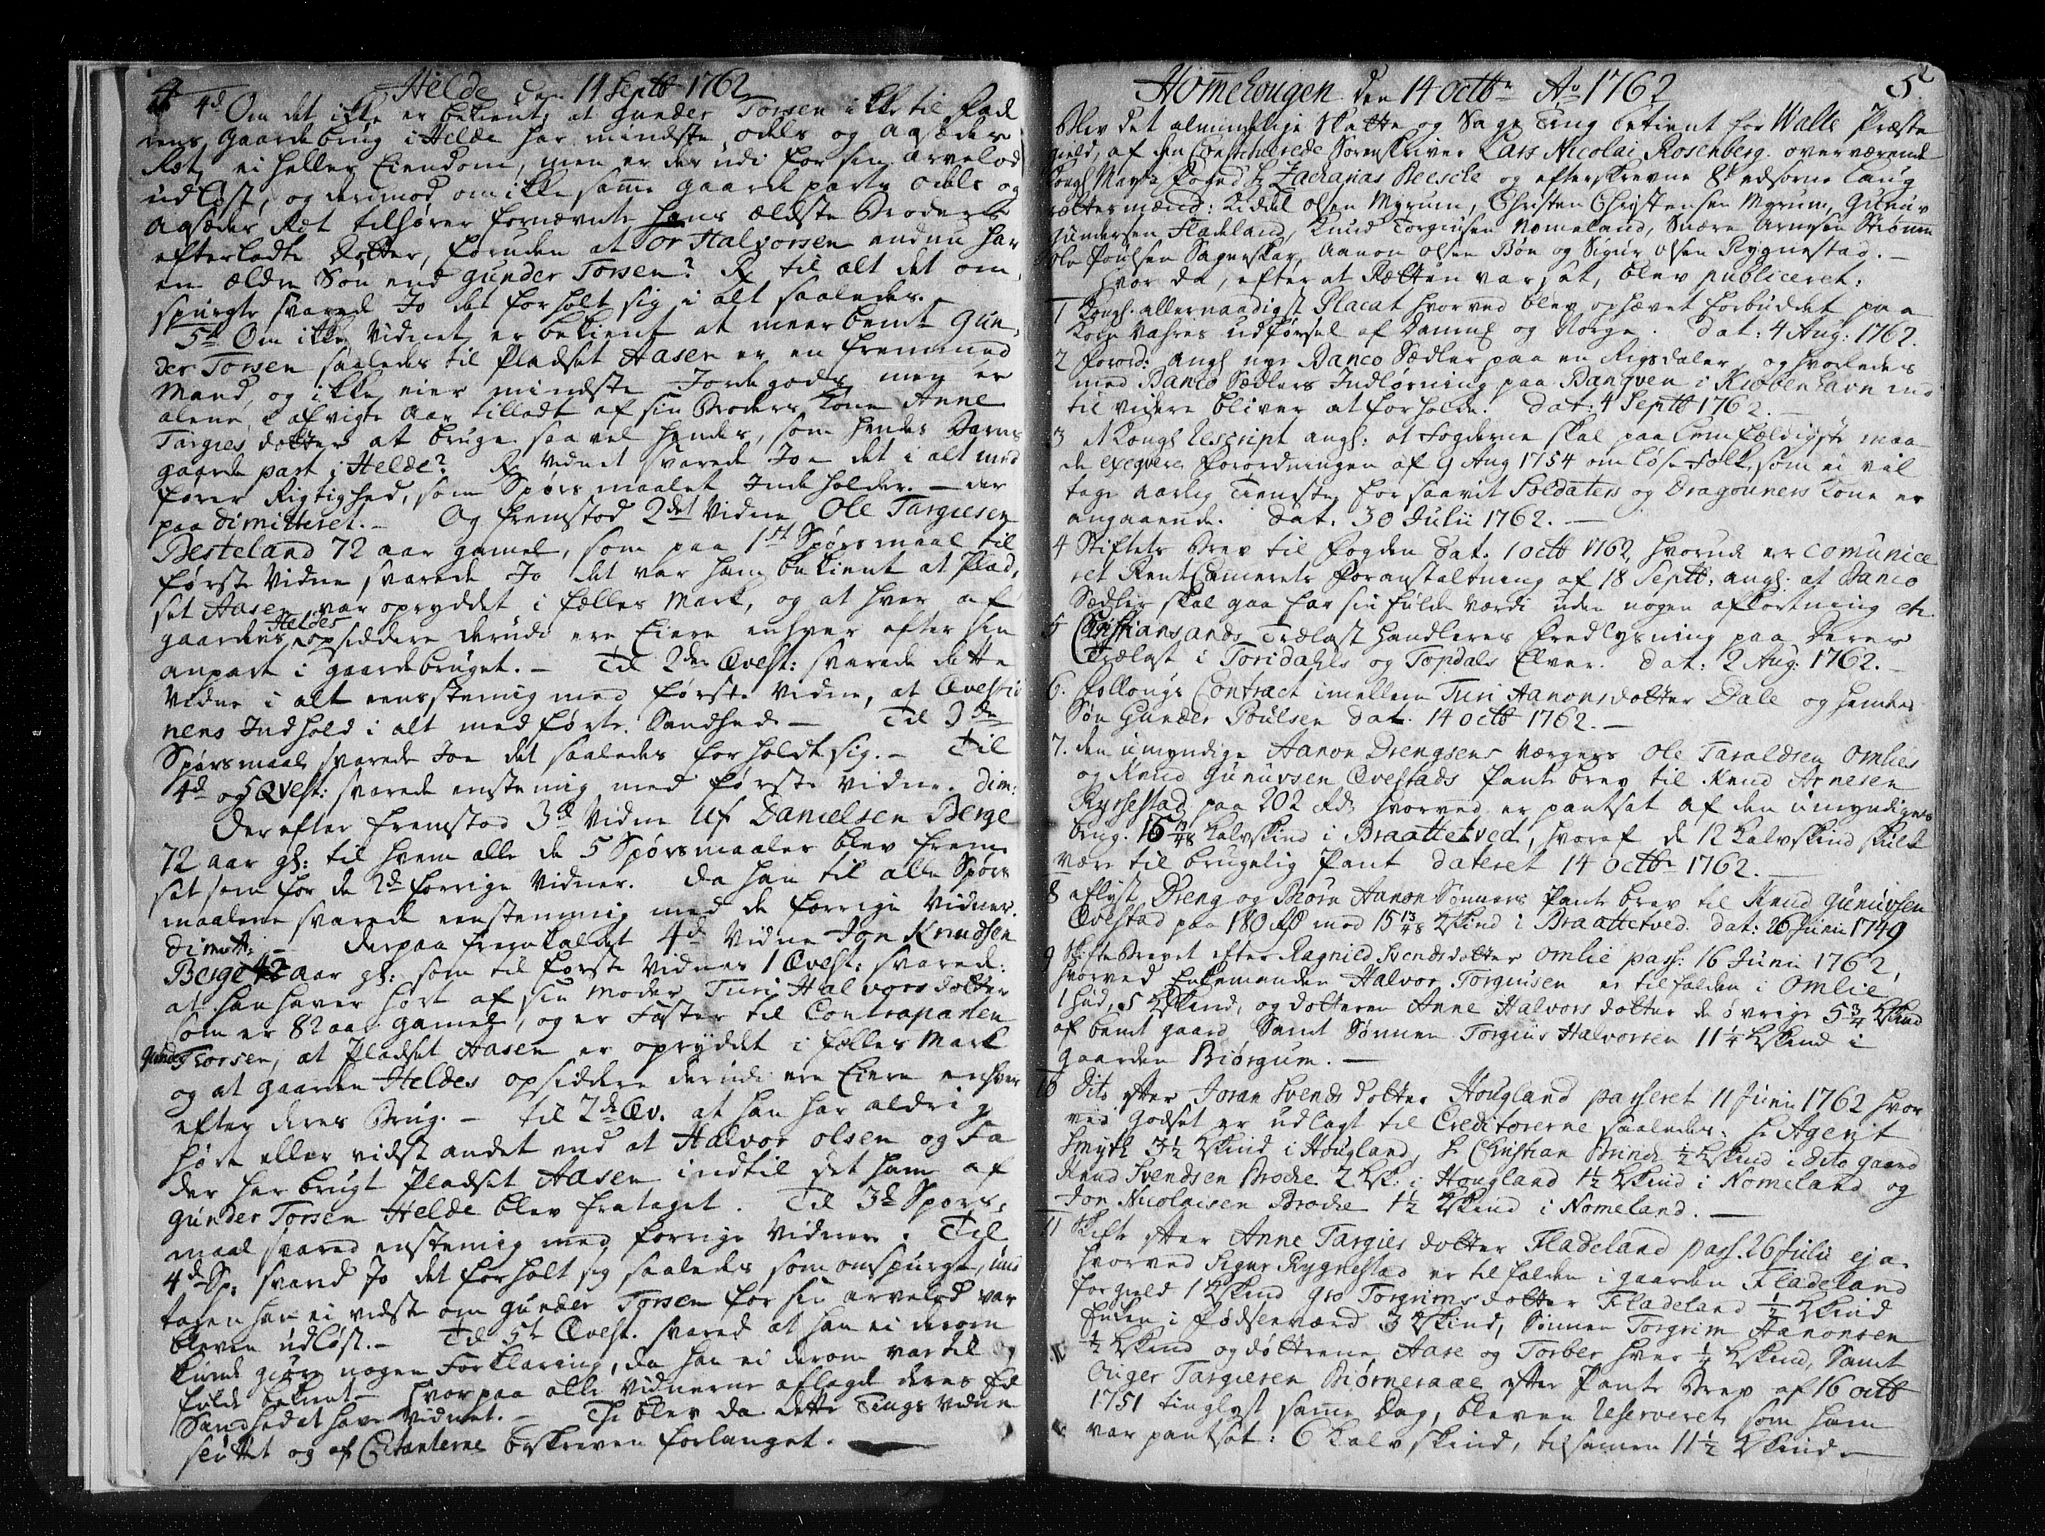 4
Helde den 14 Septb 1762
4d Om det ikke er bekient, at Gunder Torsen ikke til Fad
rens Gaardebrug i Helde har mindste odels og Aasædes
Ret, ei heller Eiendom, men er der udi for sin Arvelod
udløst, og derimod om ikke samme gaarde part odels og
Aasædes Ret tilhører fornævnte hans ældste Broders
efterladte Dotter, forinden at Or Halvorsen endnu har
en ældre Søn end Gunder Torsen? R til alt det om,
spurgte svarede Jo det forholt sig i alt saaledes.
5te Om ikke Vidnet er bekient at meerbemt Gun,
der Torsen saaledes til Pladset Aasen er en fremmed
Mand, og ikke eier mindste Jordegods, men er
alene, afvigte Aar tilladt af sin Broders Kone Anne
Targies dotter at bruge saavel hendes, som hendes Barns
gaarde part i Helde? R Vidnet svarede Joe det i alt med
fører Rigtighed, som Spørsmaalet Indeholder. – der
paa dimitteret. – Og fremstod 2det Vidne Ole Targiesen
Besteland 72 aar gamel, som paa 1ste Spørsmaal til
første Vidne svarede Jo det var ham bekient at Plad,
set Aasen var opryddet i fælles Mark, og at hver af
gaardens Heldes opsiddere derudi ere Eiere enhver efter sin
anpart i gaardebruget. – Til 2den Qvest: svarede dette
Vidne i alt eenstemig med første Vidne, at Qvestio
nens Indhold i alt medførte Sandhed – Til 3de
Spørsmaal svarede Joe det saaledes forholdt sig. – Til
4de og 5 Qvest: svarede enstemig med første Vidne. dim:
Derefter fremstod 3de Vidne Uf Danielsen Berge
72 aar gl: til hvem alle de 5 Spørsmaaler blev frem
sat som for de 2de forrige Vidner. Da han til alle Spørs
maalene svarede eenstemmig med de forrige Vidner.
dimitt: – Derpaa fremkaldet 4de Vidne Jon Knudsen
Berge 42 aar gl: som til første Vidnes 1 Qvest: svarede:
at han haver hørt af sin Moder Turi Halvorsdotter
som er 82 aar gamel, og er Faster til Contraparten
Gunder Torsen, at Pladset Aasen er opryddet i fælles Mark
og at gaarden Heldes opsiddere derudi ere Eiere enhver
efter deres Brug. – til 2de Qv. at han har aldrig
hørt eller vidst andet end at Halvor Olsen og Fa
der har brugt Pladset Aasen indtil det ham af
Gunder Torsen Helde blev frataget. Til 3de Spørs,
maal svared enstemig med forrige Vidner. Til
4de Sp: svared Jo det forholt sig saaledes som omspurgt, und
tagen han ei vidste om Gunder Torsen for sin arvelod var
bleven udløst. – Til 5te Qvest. svared at han ei derom
kunde giøre nogen Forklaring, da han ei derom var til
fulde bekient – hvorpaa alle Vidnerne aflagde deres Ed
Sandhed at have Vidnet. – Thi blev da dette Tings Vidne
sluttet og af Citanterne beskreven forlanget. –
5
Hommehougen den 14 octbr Ao 1762
Blev det almindelige Skatte og Sage Ting betient for Walle Præste
gield, af den Constituerede Sorenskriver Lars Nicolai Rosenberg overværende
Kongl. Mayts Foged Hr Zacharias Beesche og efterskrevne 8te edsorne laug
rettesmænd: Kidiel Olsen Myrum, Christen Christensen Myrum, Gunuv
Gundersen Fladeland, Knud Torgiusen Nomeland, Svære Arnesen Strømm
Ole Poulsen Sagneskar, Aanon Olsen Bøn og Sigur Olsen Rygnestad. –
Hvor da, efter at Retten var sat, blev publiceret:
1 Kongl. allernaadigst Placat hvorved blev ophævet forbuddet paa
Korn Vahres udførsel af Danmk og Norge. dat: 4 Aug: 1762.
2 Forord: angl. nye Banco Sedler paa en Rigsdaler, og hvorledes
med Banco Sedlers Indløsning paa Banqven i Kiøbenhavn ind
til videre bliver at forholde. dat: 4 Septb 1762. –
3 et Kongl. Rescript angl: at Fogderne skal paa lemfældigste maa
de exeqvere Forordningen af 9 Aug 1754 om løse Folk, som ei vil
tage aarlig Tieneste, for saavit Soldaters og Dragouners Kone er
angaaende. dat. 30 Julii 1762. –
4 Stiftets Brev til Fogden dat. 1 octb 1762, hvorudi er comunice
ret RentCamerets Foranstaltning af 18 Septb: angl. at Banco
Sedler skal gaa for sin fulde Værdi uden nogen afkortning etc.
5 Christiansands Trælast Handleres Fredlysning paa deres
Trælast i Torridahls og Topdals Elver. dat: 2 Aug: 1762. –
6. Follougs Contract imellem Turi Aanonsdotter Dale og hendes
Søn Gunder Poulsen dat. 14 octb 1762. –
7. den umyndige Aanon Drengsens Værgers Ole Taraldsen Omlies
og Knud Gunuvsen Qvestads Pantebrev til Knud Arnesen
Rygnestad paa 202 Rd, hvorved er pantsat af den umyndiges
brug. 15 13/48 Kalvskind i Braattetved, hvoraf de 12 Kalvskind skulde
være til brugelig Pant dateret 14 octbr 1762. –
8 aflyst Dreng og Biørn Aanon Sønners Pantebrev til Knud Gunuvsen
Qvestad paa 180 Rd med 15 13/48 Kskind i Braattetved. dat: 26 Junii 1749
9 Skifte Brevet efter Ragnild Svendsdotter Omlie pass: 16 Junii 1762,
hvorved Enkemanden Halvor Torgiusen er tilfalden i Omlie
1 hud, 5 Kskind, og dotteren Anne Halvorsdotter de øvrige 5 3/4 Kskind
af bemt gaard samt Sønnen Torgius Halvorsen 11 1/4 Kskind i
Gaarden Biørgum. –
10 Dito efter Joran Svends dotter Hougland passeret 11 Junii 1762 hvor
ved Godset er udlagt til Creditorerne saaledes: Hr Agent
Smyth 3 1/2 Kskind i Hougland, Hr Christian Brinch 1/2 Kskind i dito gaard
Knud Svendsen Broche 2 Ksk: i Hougland 1 1/2 Kskind i Nomeland og
Jon Nicolaisen Broche 1 1/2 Kskind i Nomeland. –
11 Skifte efter Anne Targies dotter Fladeland pass. 26 Julii eja.
hvorved Sigur Rygnestad er tilfalden i gaarden Fladeland
for gield 1 Kskind Gro Torgrims dotter Fladeland 1/2 Kskind
Enken i Fødsenværd 3 Kskind, Sønnen Torgrim Aanonsen
1/2 Kskind og døttrene Aase og Torber hver 1/4 Kskind, samt
Ouger Targiesen Biørneraae efter Pante Brev af 16 octb
1751 tinglyst samme Dag, bleven reserveret som ham
var pantsat: 6 Kalvskind, tilsamen 11 1/2 Kskind –